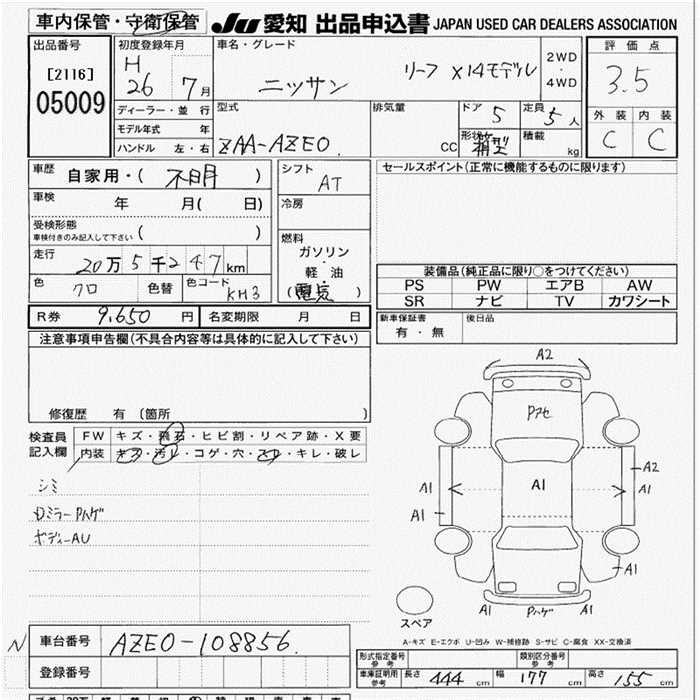 車内保管・守衛保管
JU 愛知 出品申込書 JAPAN USED CAR DEALERS ASSOCIATION
出品番号
[2116]
05009
初度登録年月
H
26 7月
ディーラー・並 行
モデル年式 年
ハンドル 左・右
車名・グレード
ニッサン リーフ X14モデル
2WD
・
4WD
評 価 点
3.5
外 装 内 装
C C
型式
ZAA-AZEO.
排気量
CC
ドア 5
定員 5人
形状 箱型
積載
kg
車歴 自家用・( 不明 )
車検 年 月( 日)
受検形態
車検付きのみ記入して下さい ( )
走行 20万5千247km
色 クロ 色替 色コード KH3
シフト AT
冷房
燃料
ガソリン
・
軽・油
(電気)
セールスポイント(正常に機能するものに限ります)
装備品(純正品に限り○をつけてください)
PS PW エアB AW
SR ナビ TV カワシート
新車保証書
有・無
後日品
R券 9,650 円 名変期限 月 日
注意事項申告欄(不具合内容等は具体的に記入して下さい)
修復歴 有 (箇所 )
検査員
記入欄
FW キズ・飛石・ヒビ割・リペア跡・X要
内装 キズ・汚レ・コゲ・穴・スレ・キレ・破レ
シミ
Dミラー Pハゲ
ボディーAU
A2
Pアセ
A1
A2
A1
A1
A1
A1
A1
Pハゲ
A1
スペア
A-キズ E-エクボ U-凹み W-補修跡 S-サビ C-腐食 XX-交換済
N 車台番号 AZEO-108856.
登録番号
形式指定番号
参 考
類別区分番号
参 考
車庫証明用
参 考
長さ 444 cm 幅 177 cm 高さ 155 cm